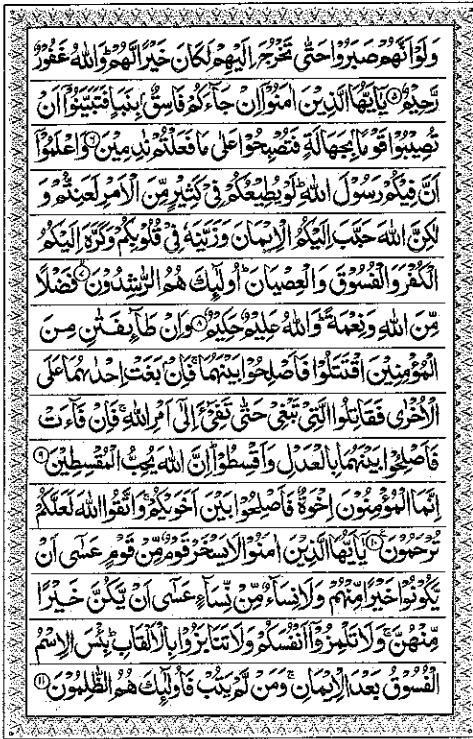 وَلَوْ اَنَّهُمْ صَبَرُوْا حَتّٰى تَخْرُجَ اِلَيْهِمْ لَكَانَ خَيْرًا لَّهُمْ ؕ وَاللّٰهُ غَفُوْرٌ
رَّحِيْمٌ ﴿۵﴾ يٰۤاَيُّهَا الَّذِيْنَ اٰمَنُوْۤا اِنْ جَآءَكُمْ فَاسِقٌۢ بِنَبَاٍ فَتَبَيَّنُوْۤا اَنْ
تُصِيْبُوْا قَوْمًۢا بِجَهَالَةٍ فَتُصْبِحُوْا عَلٰى مَا فَعَلْتُمْ نٰدِمِيْنَ ﴿۶﴾ وَاعْلَمُوْۤا
اَنَّ فِيْكُمْ رَسُوْلَ اللّٰهِ ؕ لَوْ يُطِيْعُكُمْ فِيْ كَثِيْرٍ مِّنَ الْاَمْرِ لَعَنِتُّمْ وَ
لٰكِنَّ اللّٰهَ حَبَّبَ اِلَيْكُمُ الْاِيْمَانَ وَزَيَّنَهٗ فِيْ قُلُوْبِكُمْ وَكَرَّهَ اِلَيْكُمُ
الْكُفْرَ وَالْفُسُوْقَ وَالْعِصْيَانَ ؕ اُولٰٓئِكَ هُمُ الرّٰشِدُوْنَ ﴿۷﴾ فَضْلًا
مِّنَ اللّٰهِ وَنِعْمَةً ؕ وَاللّٰهُ عَلِيْمٌ حَكِيْمٌ ﴿۸﴾ وَاِنْ طَآئِفَتٰنِ مِنَ
الْمُؤْمِنِيْنَ اقْتَتَلُوْا فَاَصْلِحُوْا بَيْنَهُمَا ۚ فَاِنْۢ بَغَتْ اِحْدٰىهُمَا عَلَى
الْاُخْرٰى فَقَاتِلُوا الَّتِيْ تَبْغِيْ حَتّٰى تَفِيْٓءَ اِلٰۤى اَمْرِ اللّٰهِ ۚ فَاِنْ فَآءَتْ
فَاَصْلِحُوْا بَيْنَهُمَا بِالْعَدْلِ وَاَقْسِطُوْا ؕ اِنَّ اللّٰهَ يُحِبُّ الْمُقْسِطِيْنَ ﴿۹﴾
اِنَّمَا الْمُؤْمِنُوْنَ اِخْوَةٌ فَاَصْلِحُوْا بَيْنَ اَخَوَيْكُمْ ۚ وَاتَّقُوا اللّٰهَ لَعَلَّكُمْ
تُرْحَمُوْنَ ﴿۱۰﴾ يٰۤاَيُّهَا الَّذِيْنَ اٰمَنُوْا لَا يَسْخَرْ قَوْمٌ مِّنْ قَوْمٍ عَسٰۤى اَنْ
يَّكُوْنُوْا خَيْرًا مِّنْهُمْ وَلَا نِسَآءٌ مِّنْ نِّسَآءٍ عَسٰۤى اَنْ يَّكُنَّ خَيْرًا
مِّنْهُنَّ ۚ وَلَا تَلْمِزُوْۤا اَنْفُسَكُمْ وَلَا تَنَابَزُوْا بِالْاَلْقَابِ ؕ بِئْسَ الِاسْمُ
الْفُسُوْقُ بَعْدَ الْاِيْمَانِ ۚ وَمَنْ لَّمْ يَتُبْ فَاُولٰٓئِكَ هُمُ الظّٰلِمُوْنَ ﴿۱۱﴾